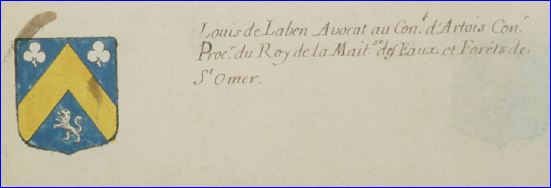 Louis de Laben Avocat au Con.l d'Artois Con.r
Proc.r du Roy de la Mait.se des Eaux et Forêts de
S.t Omer.